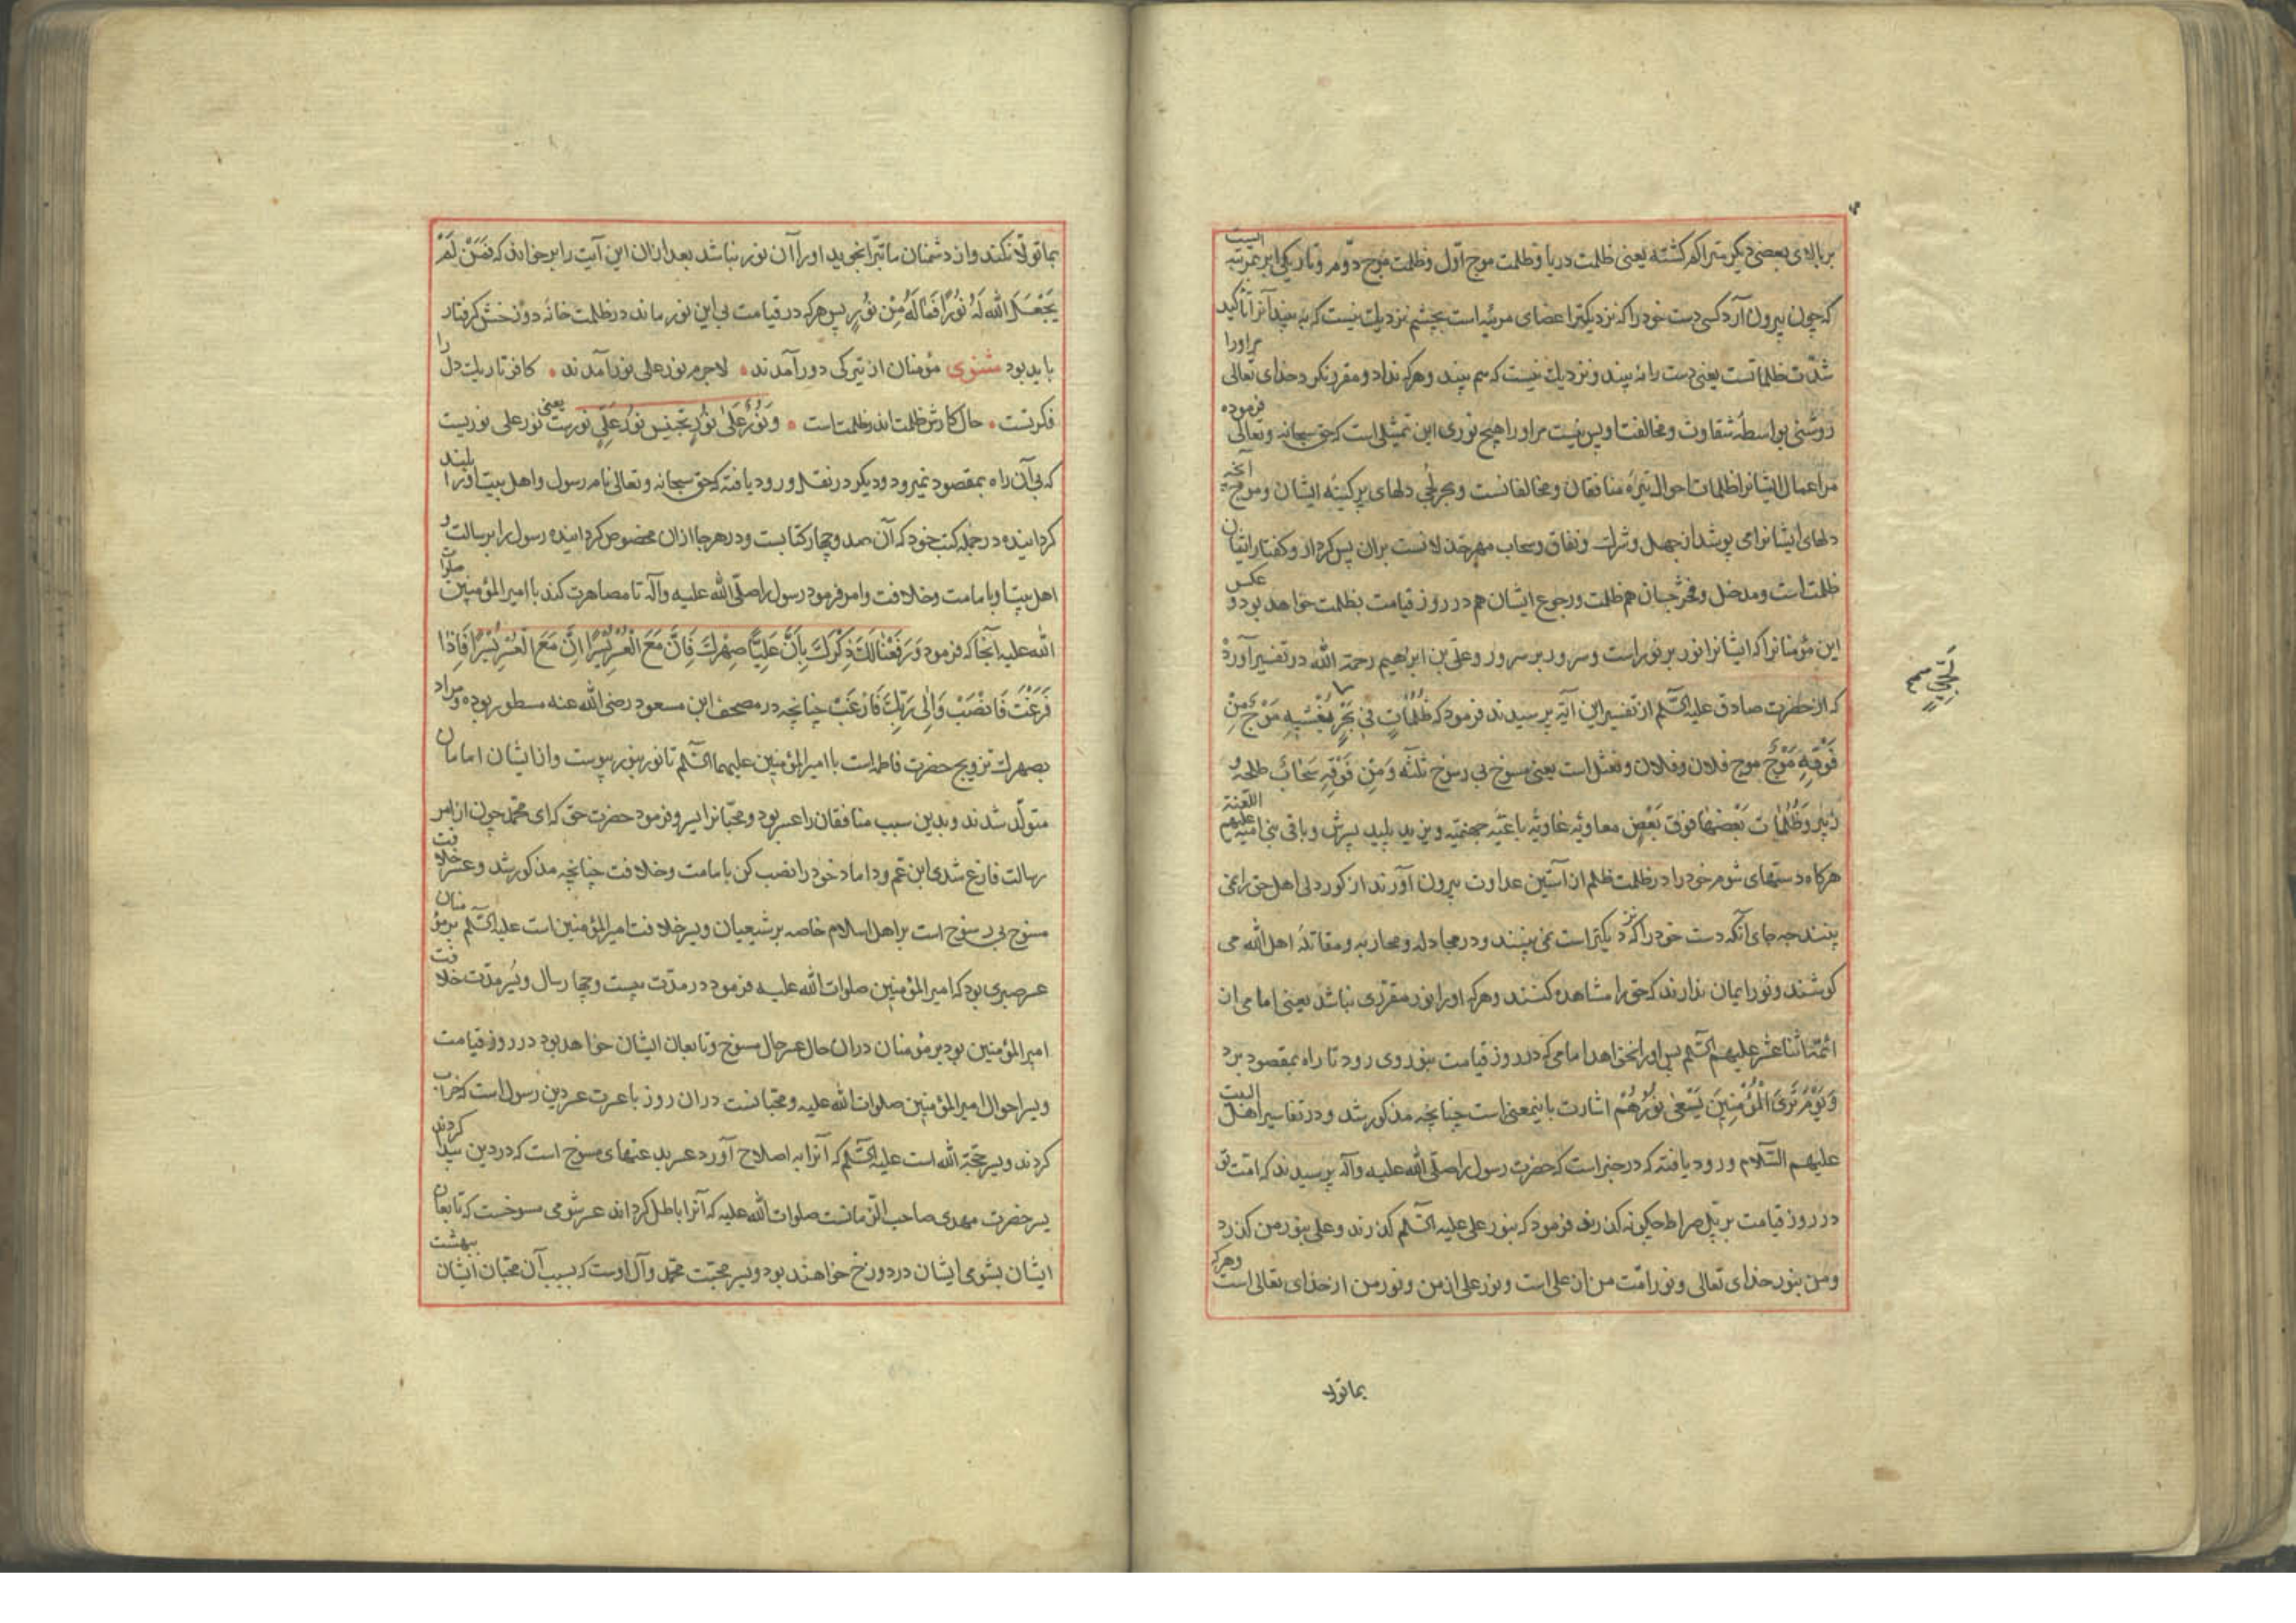 بر بالای بعضی دیگر متراکم گشته یعنی ظلمت دریا و ظلمت موج اول و ظلمت موج دوم و تاریکی ابر بمرتبه ایست
که چون بیرون آرد کسی دست خود را که نزدیکترا عضای مرئیه است بچشم نزدیک نیست که به بیند آنرا تاکید
شدّت ظلماتست یعنی دست را نه بیند و نزدیک نیست که هم بیند و هرکه نداد و مقرر نکرد خدای تعالی مر او را
روشنی بواسطهٔ شقاوت و مخالفت او پس نیست مر او را هیچ نوری این تمثیلی است که حق سبحانه و تعالی فرموده
مر اعمال ایشانرا ظلمات احوال تیرهٔ منافقان و مخالفانست و بحر لجی دلهای پر کینهٔ ایشان و موج آنچه
دلهای ایشانرا می پوشد از جهل و شرک و نفاق و سحاب مهر خذلانست بران پس کردار و گفتار ایشان
ظلمت است و مدخل و مخرجشان هم ظلمت و رجوع ایشان هم در روز قیامت بظلمت خواهد بود و عکس
این مؤمنانرا که ایشانرا نور بر نور است و سرور بر سرور و علی بن ابراهیم رحمة الله در تفسیر آورده
که از حضرت صادق علیه السّلم از تفسیر این آیه پرسیدند فرمود که ظُلُمَاتٍ فِی بَحْرٍ یَغْشٰیهِ مَوْجٌ مِنْ
لُجِّیٍّ صح
فَوْقِهِ مَوْجٌ موج فلان و فلان و نعثل است یعنی منسوخ بی رسوخ ثلثه وَمِنْ فَوْقِهِ سَحَابٌ طلحه و
زبیر وَظُلُمَات بَعْضُهَا فَوْقَ بَعْضٍ معاویه غاویه باغیه جهنمیه و یزید پلید پسرش و باقی بنی امیه علیهم اللّعنة
هرکاه دستهای شوم خود را در ظلمت ظلم از آستین عداوت بیرون آورند از کوردلی اهل حق را نمی
بینند چه جای آنکه دست خود را که نزدیکتر است نمی بینند و در مجادله و محاربه و مقاتلهٔ اهل الله می
کوشند و نور ایمان ندارند که حق را مشاهده کنند و هرکه او را نور مقرری نباشد یعنی امامی از
ائمّهٔ اثنا عشر علیهم السّلم پس او را نخواهد امامی که در روز قیامت بنور وی رود تا راه بمقصود برد
وَیَوْمَ تَرَی الْمُؤْمِنِینَ یَسْعٰی نُورُهُمْ اشارت باینمعنی است چنانچه مذکور شد و در تفاسیر اهل البیت
علیهم السّلام ورود یافته که در خبر است که حضرت رسول را صلّی الله علیه وآله پرسیدند که امّت تو
در روز قیامت بر پل صراط چگونه گذرند فرمود که بنور علی علیه السّلم گذرند و علی بنور من گذرد
و من بنور خدای تعالی و نور امّت من از علی است و نور علی از من و نور من از خدای تعالی است و هرکه
بما تولا
بما تولّا نکند و از دشمنان ما تبرّا نجوید او را آن نور نباشد بعد ازان این آیت را بر خواند که فَمَنْ لَمْ
یَجْعَلِ الله لَهُ نُورًا فَمَا لَهُ مِنْ نُورٍ پس هرکه در قیامت بی این نور ماند در ظلمت خانه دوزخش گرفتار
باید بود مثنوی مؤمنان از تیرگی دور آمدند * لاجرم نور علی نور آمدند * کافر تاریک دل را
فکرتست * حال کارش ظلمت اندر ظلمت است * وَنُورٌ عَلیٰ نُورٍ تجنیس نُورُ عَلِیٍّ نورست یعنی نور علی نوریست
که بی آن راه بمقصود نمیرود و دیگر در نقل ورود یافته که حق سبحانه و تعالی نام رسول و اهل بیت او را بلند
گردانیده در جمله کتب خود که آن صد و چهار کتابست و در هرجا ازان مخصوص گردانیده رسول را برسالت و
اهل بیت او با امامت و خلافت و امر فرمود رسول را صلّی الله علیه وآله تا مصاهرت کند با امیر المؤمنین صلوات
الله علیه آنجا که فرمود وَرَفَعْنَا لَکَ ذِکْرَکَ بِأَنَّ عَلِیًّا صِهْرُکَ فَإِنَّ مَعَ الْعُسْرِ یُسْرًا اِنَّ مَعَ الْعُسْرِ یُسْرًا فَإِذَا
فَرَغْتَ فَانْصَبْ وَاِلٰی رَبِّکَ فَارْغَبْ چنانچه در مصحف ابن مسعود رضی الله عنه مسطور بوده و مراد
بصهرک تزویج حضرت فاطمه است با امیر المؤمنین علیهما السّلم تا نور بنور پیوست و از ایشان امامان
متولّد شدند و بدین سبب منافقان را عسر بود و محبّانرا یسر و فرمود حضرت حق که ای محمّد چون از امر
رسالت فارغ شدی ابن عمّ و داماد خود را نصب کن بامامت و خلافت چنانچه مذکور شد و عسر خلافت
منسوخ بی رسوخ است بر اهل اسلام خاصه بر شیعیان و یسر خلافت امیر المؤمنین است علیه السّلم بر مؤمنان
عسر صبری بود که امیر المؤمنین صلوات الله علیه فرمود در مدّت بیست و چهار سال و یُسر مدّت خلافت
امیر المؤمنین بود بر مؤمنان دران حال عسر حال منسوخ و تابعان ایشان خواهد بود در روز قیامت
و یسر احوال امیر المؤمنین صلوات الله علیه و محبّانست دران روز با عزت عسر دین رسول است که خراب
کردند و یسر حجّة الله است علیه السّلم که آنرا به اصلاح آورد عسر بدعتهای منسوخ است که در دین پیدا کردند
یسر حضرت مهدی صاحب الزّمانست صلوات الله علیه که آنرا باطل گرداند عسر شومی منسوخست که تابعان
ایشان بشومی ایشان در دوزخ خواهند بود و یسر محبّت محمّد و آل اوست که بسبب آن محبّان ایشان بهشت